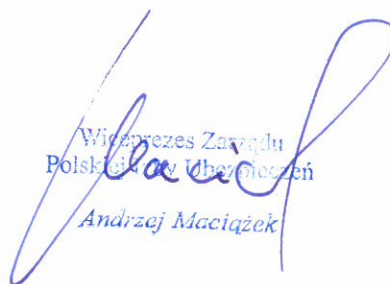 Wiceprezes Zarządu
Polskiej Izby Ubezpieczeń
Andrzej Maciążek